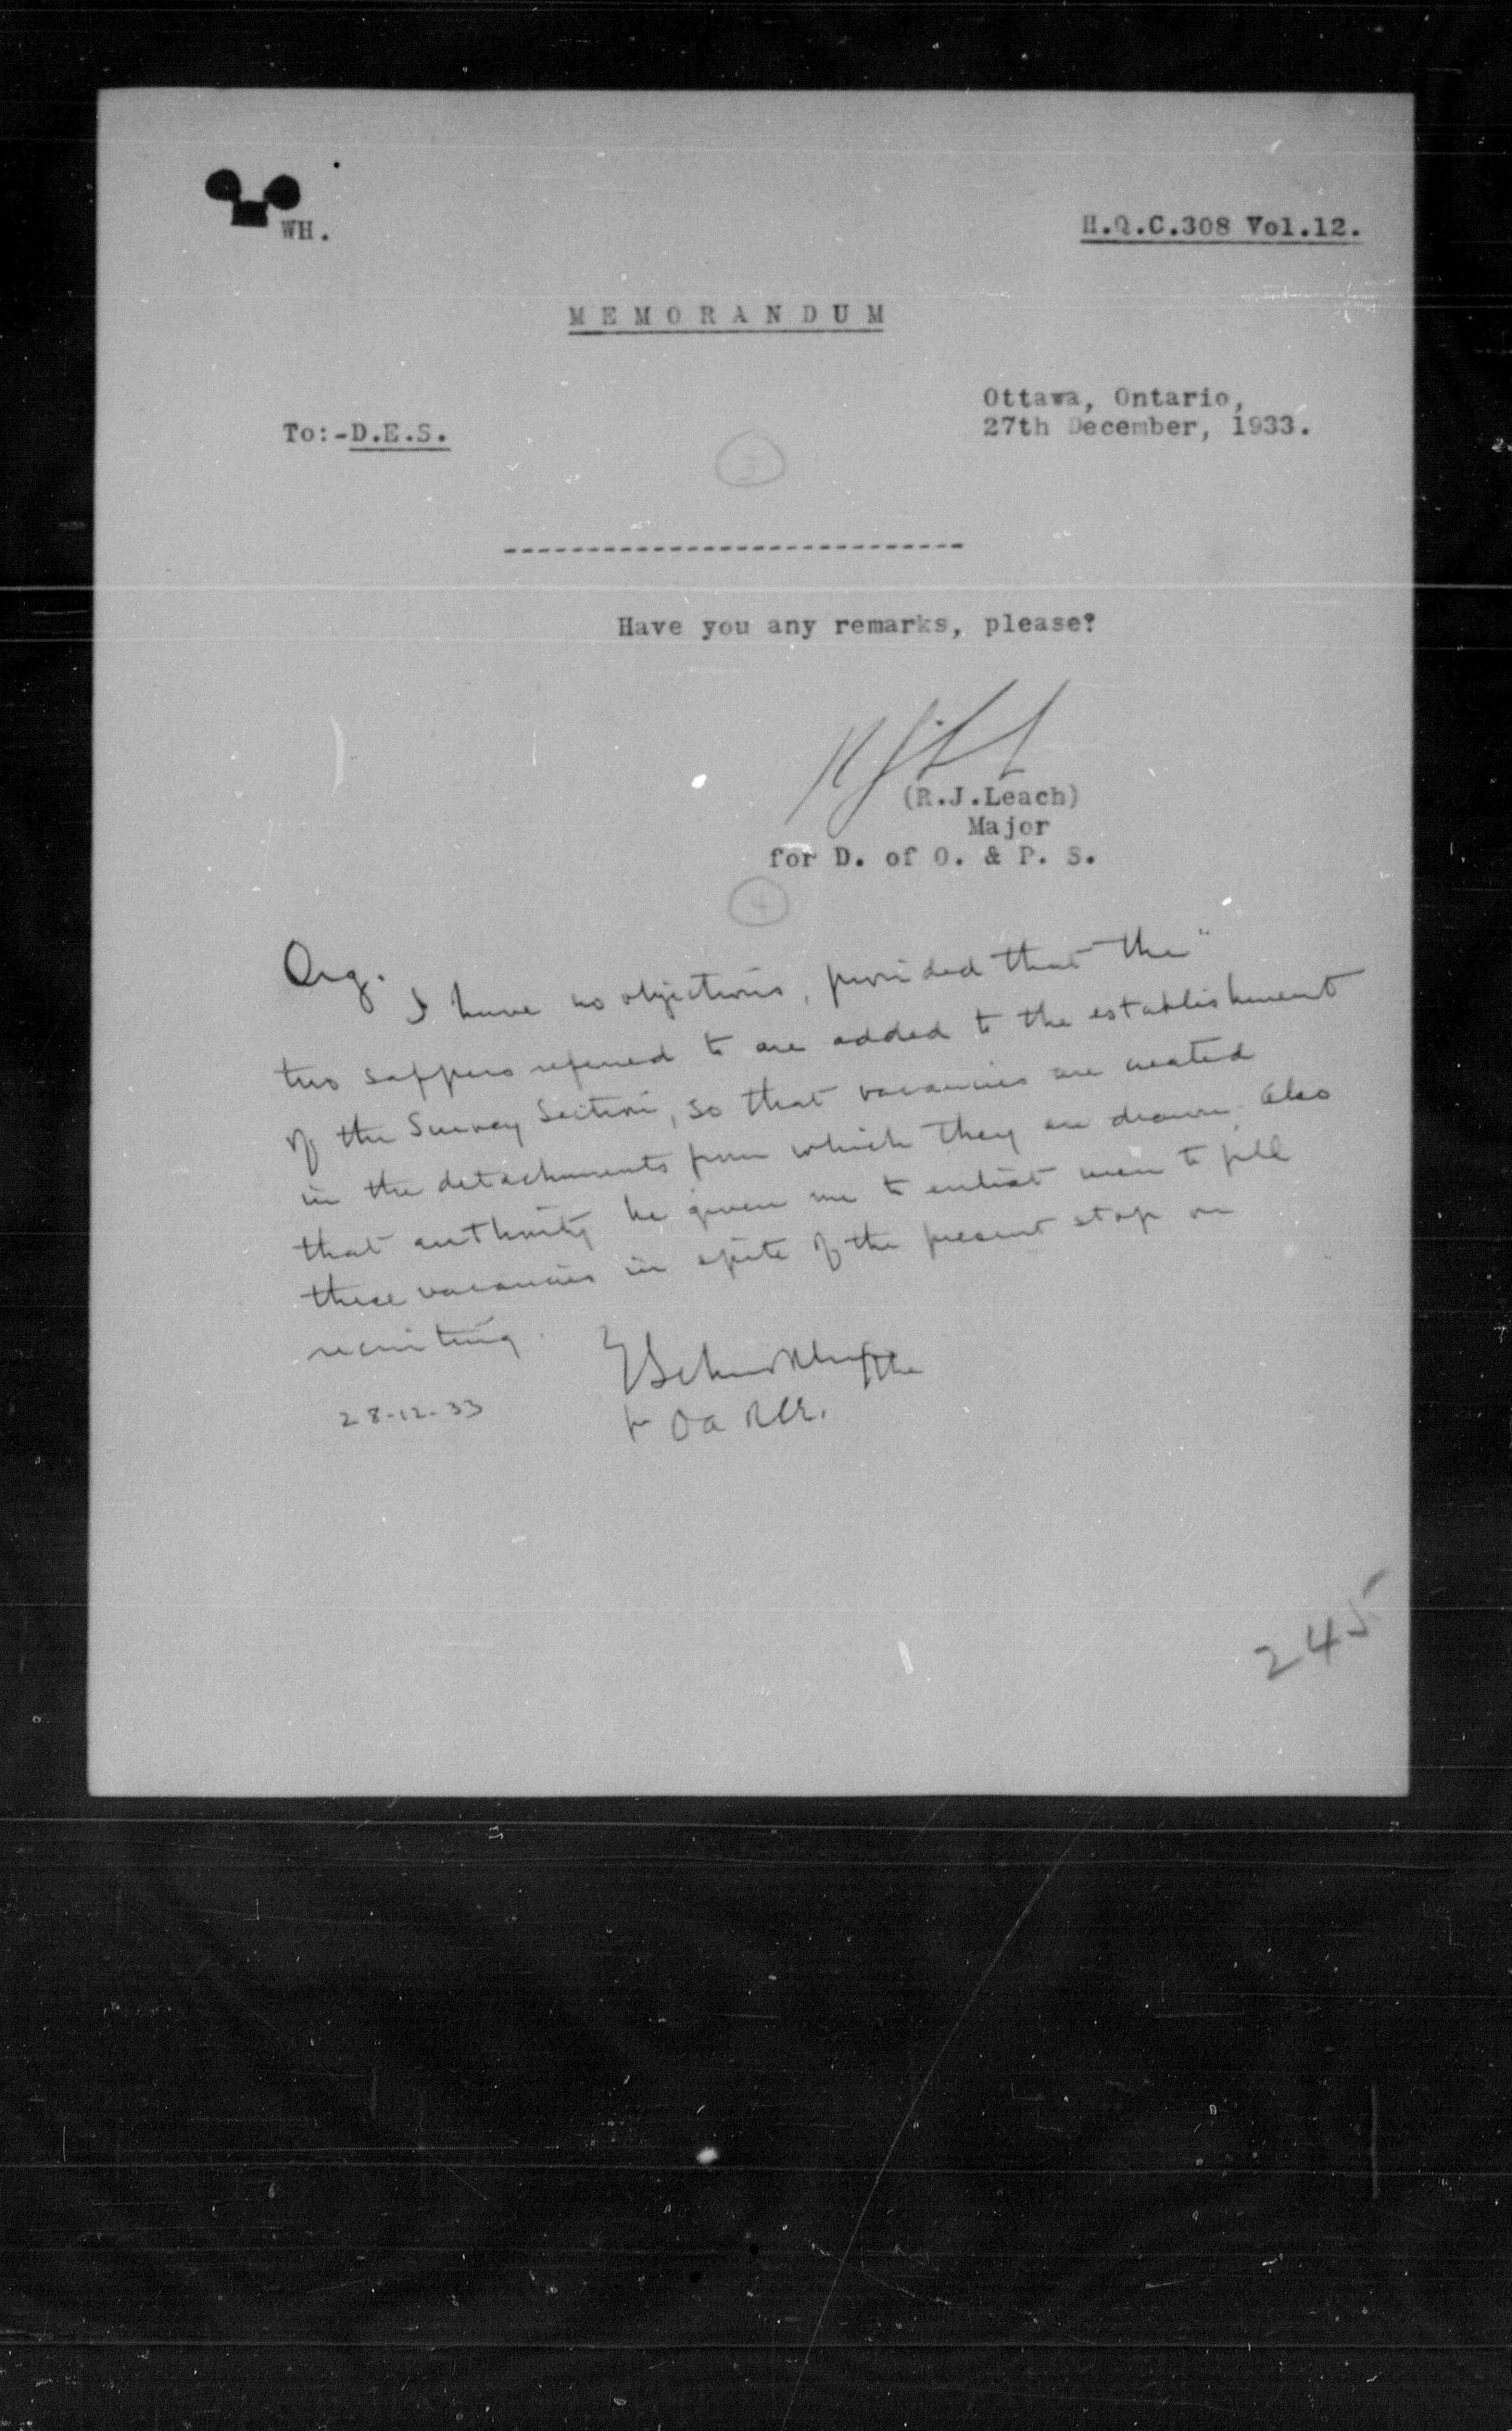 WH.
H.Q.C.308 Vol.12.
MEMORANDUM
Ottawa, Ontario,
27th December, 1933.
To:-D.E.S.
3
----------------------------
Have you any remarks, please?
(R.J.Leach)
Major
for D. of O. & P. S.
4
Org.
I have no objections, provided that the
two sappers referred to are added to the establishment
of the Survey Section, so that vacancies are created
in the detachments from which they are drawn. Also
that authority be given me to enlist men to fill
these vacancies in spite of the present stop on
recruiting.
28-12-33
for OA RCE.
245